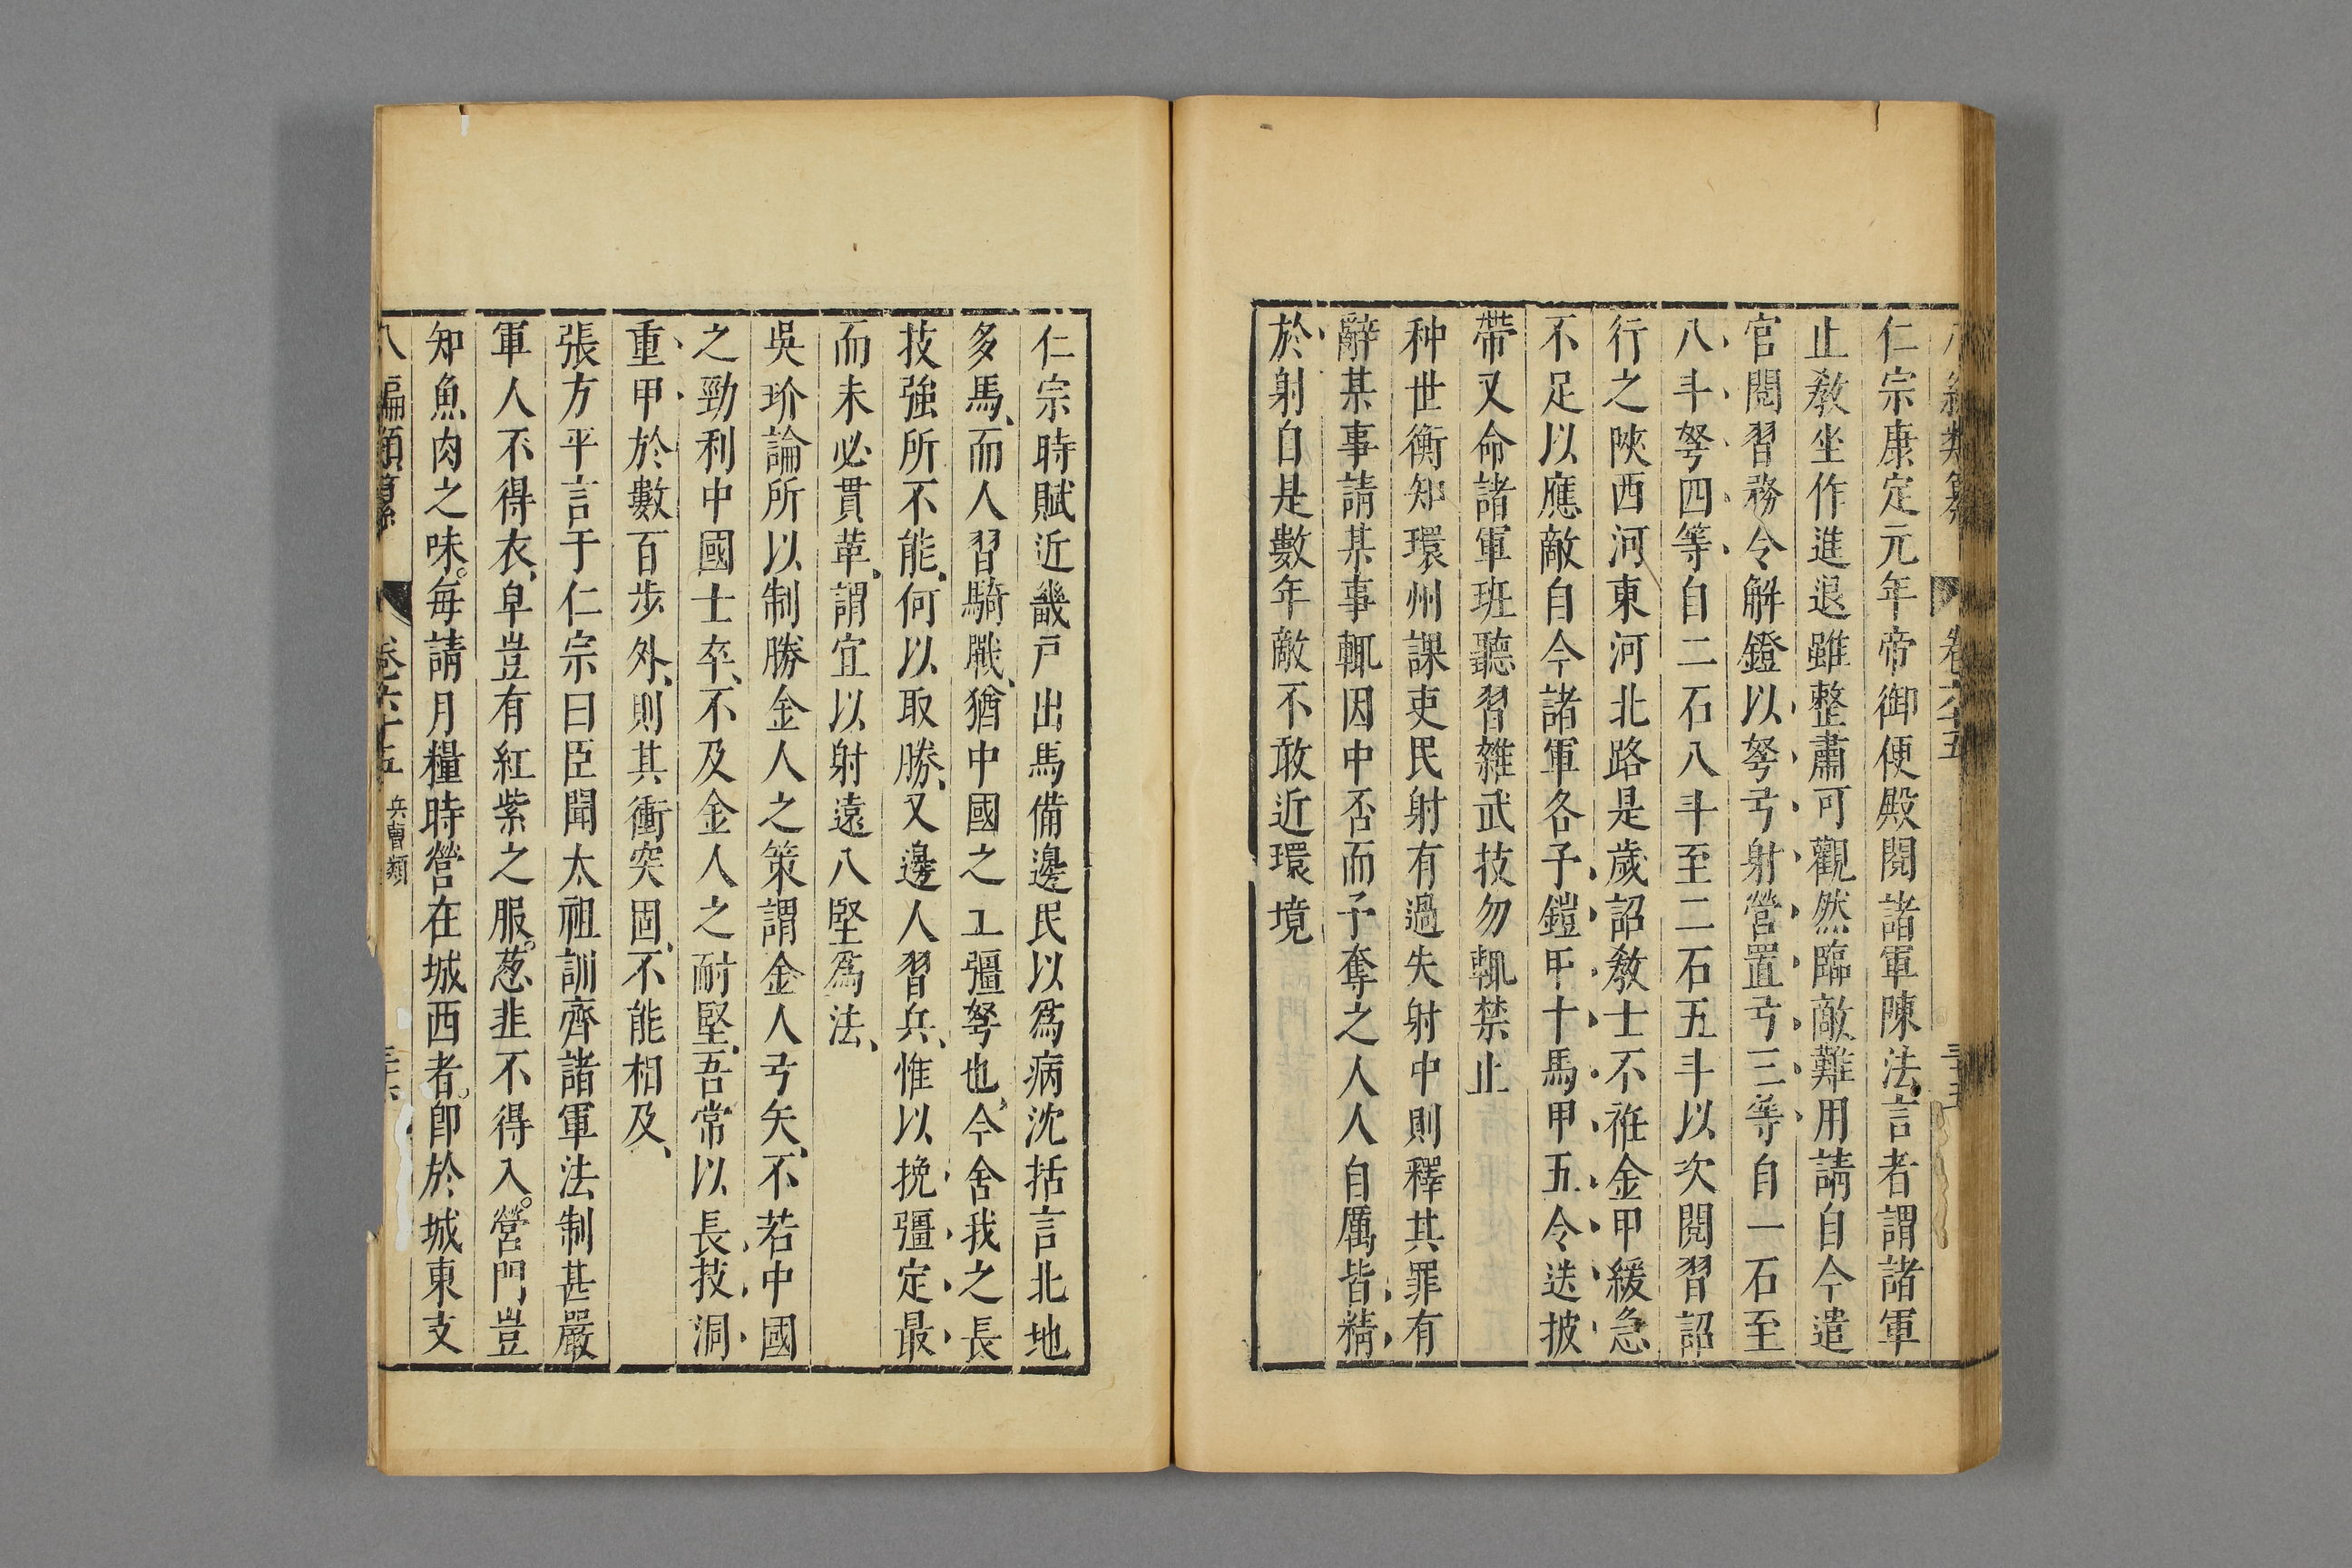 仁宗康定元年帝御便殿閱諸軍陳法言者謂諸軍
止教坐作進退雖整肅可觀然臨敵難用請自今遣
官閱習務令解鐙以弩弓射營置弓三等自一石至
八斗弩四等自二石八斗至二石五斗以次閱習詔
行之陝西河東河北路是歲詔教士不袵金甲緩急
不足以應敵自今諸軍各予鎧甲十馬甲五令迭披
帶又命諸軍班聽習雜武技勿輒禁止
种世衡知環州課吏民射有過失射中則釋其罪有
辭某事請某事輒因中否而予奪之人人自厲皆精
於射自是數年敵不敢近環境
仁宗時賦近畿戶出馬備邊民以爲病沈括言北地
多馬、而人習騎戰、猶中國之工彊弩也、今舍我之長
技強所不能、何以取勝、又邊人習兵、惟以挽彊定最
而未必貫革、謂宜以射遠入堅爲法、
吳玠論所以制勝金人之策謂金人弓矢、不若中國
之勁利中國士卒、不及金人之耐堅、吾常以長技洞
重甲於數百步外、則其衝突固、不能相及、
張方平言于仁宗曰臣聞太祖訓齊諸軍法制甚嚴
軍人不得衣、皁豈有紅紫之服。葱韭不得入。營門豈
知魚肉之味。每請月糧時營在城西者。卽於城東支
八編類纂 卷六十五 兵曹類